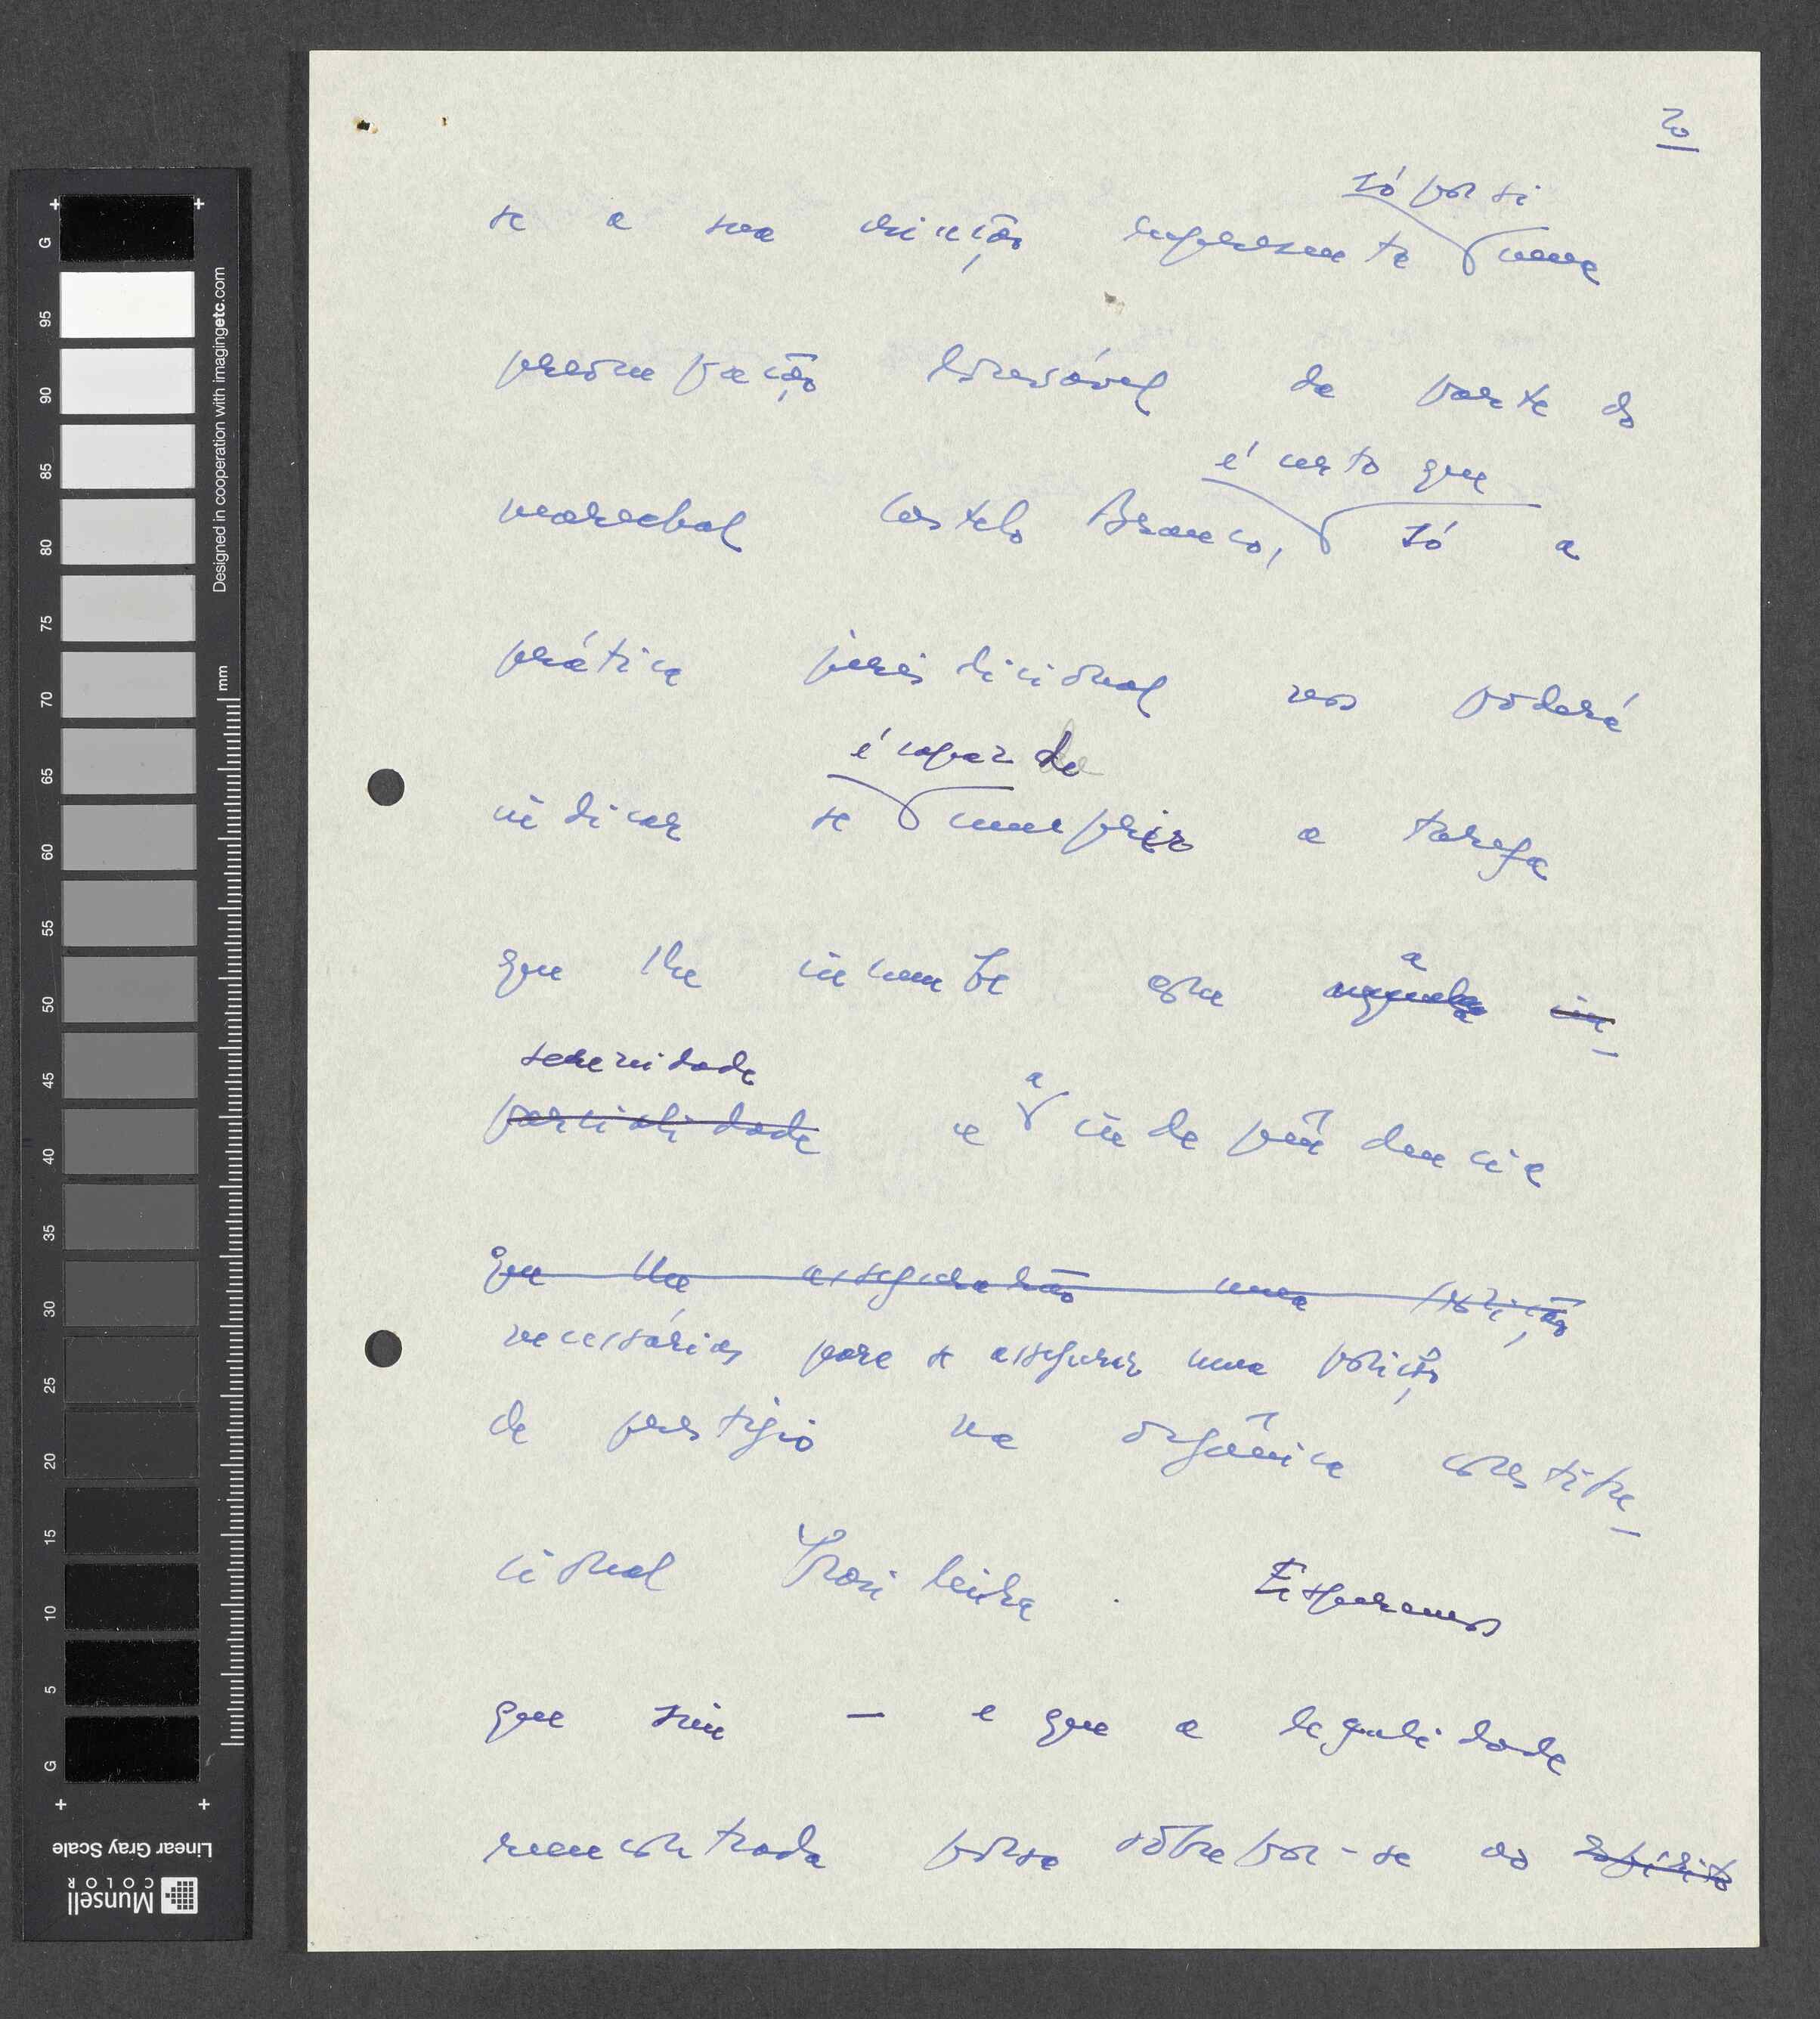 20
só por si
se a sua criação representa uma
preocupação louvável da parte do
é certo que
marechal Castelo Branco, só a
prática jurisdicional nos poderá
é capaz de
indicar se cumprir a tarefa
que lhe incumbe com a in-
serenidade
parcialidade e a independência
que lhe assegurarão uma posição
necessárias para se assegurar uma posição
de prestígio na orgânica constitu-
cional brasileira. Esperamos
que sim — e que a legalidade
reencontrada possa sobrepor-se ao espírito
G 95 90 85 80 75 70 65 60 55 50 45 40 35 30 25 20 15 10 5 G
mm
Designed in cooperation with imagingetc.com
Linear Gray Scale
Munsell
COLOR